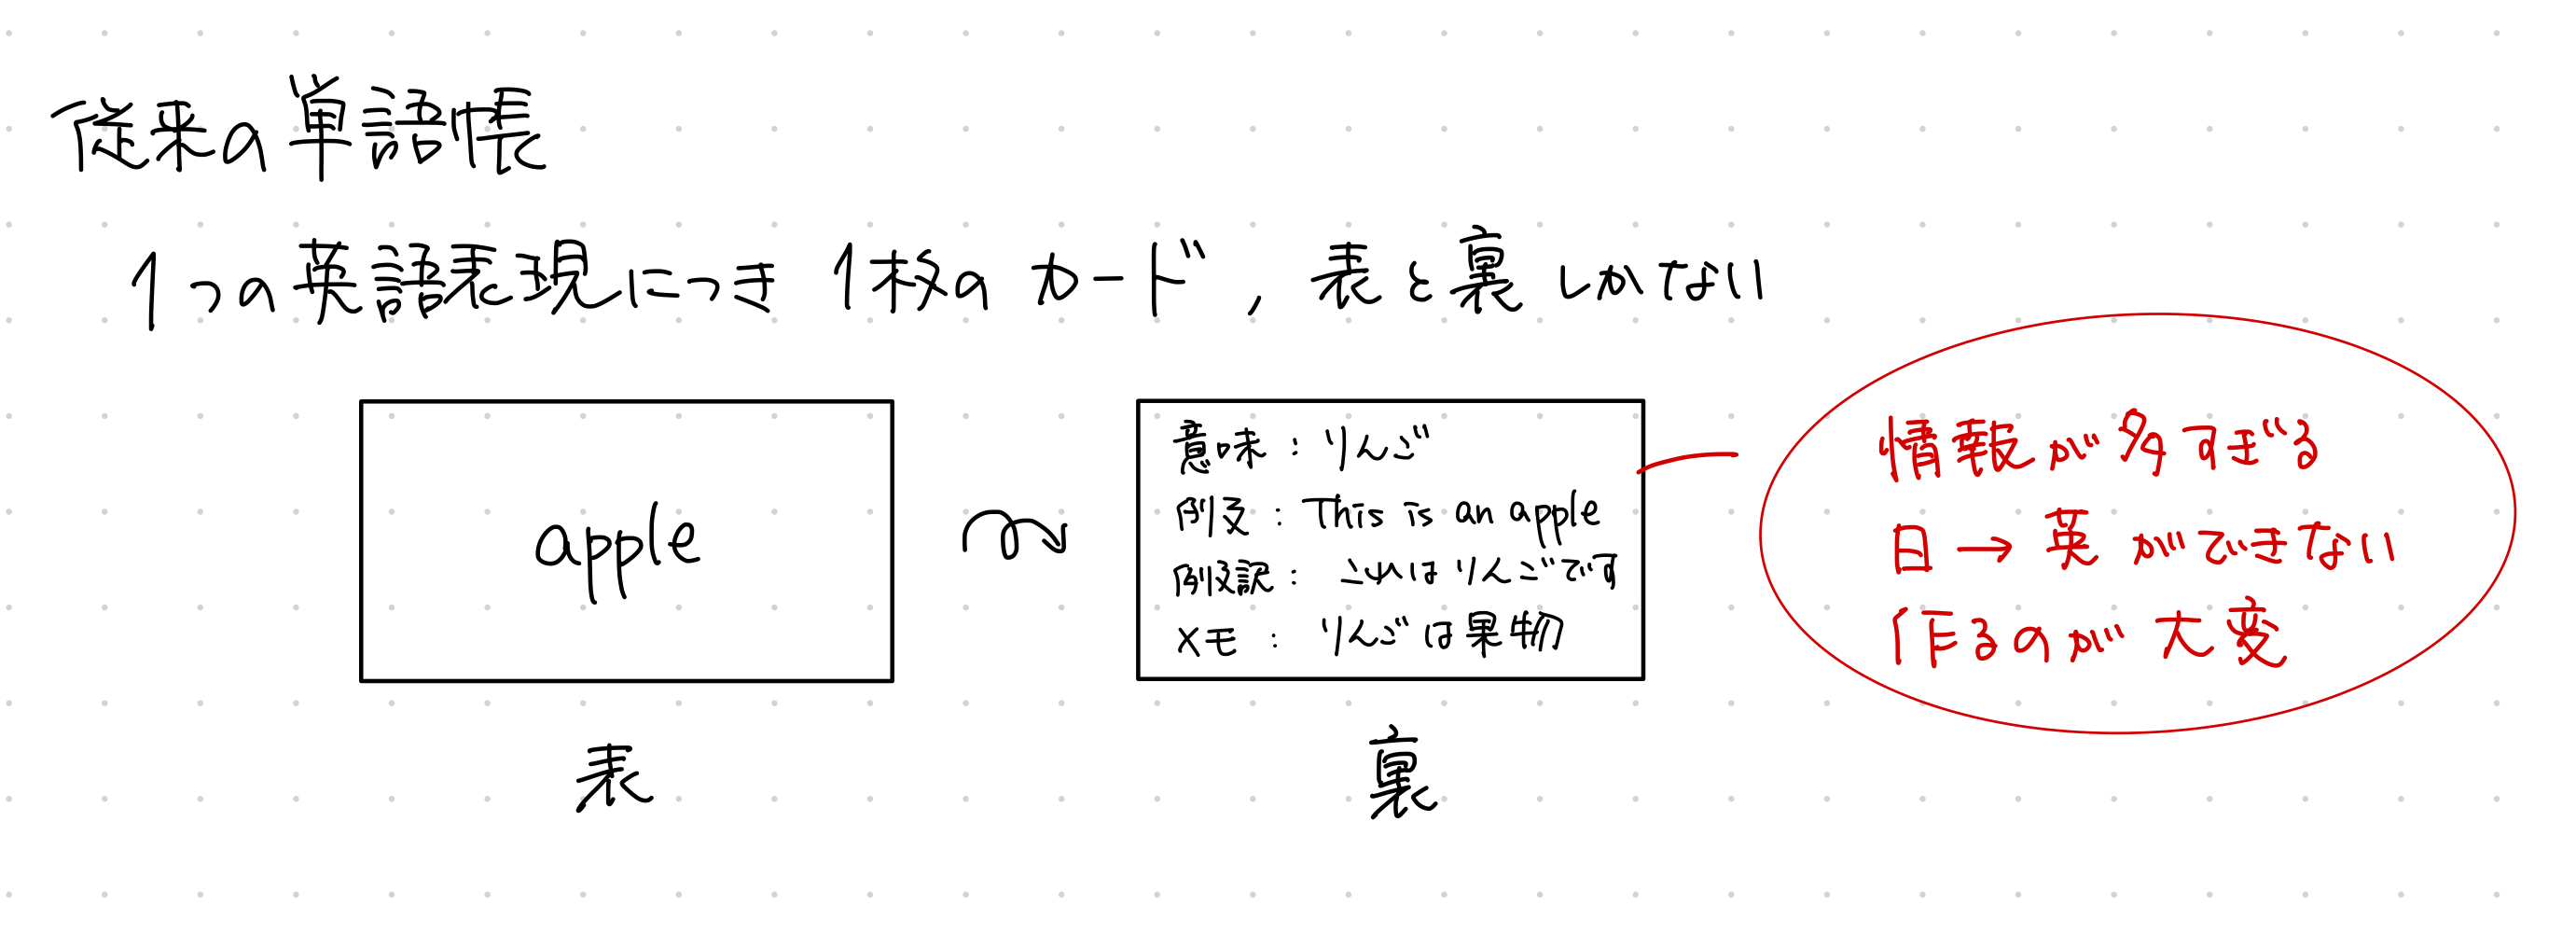 従来の単語帳
1つの英語表現につき 1枚の カード, 表と裏しかない
apple
表
意味：りんご
例文：This is an apple
例文訳：これはりんごです
メモ：りんごは果物
裏
情報が多すぎる
日→英ができない
作るのが大変